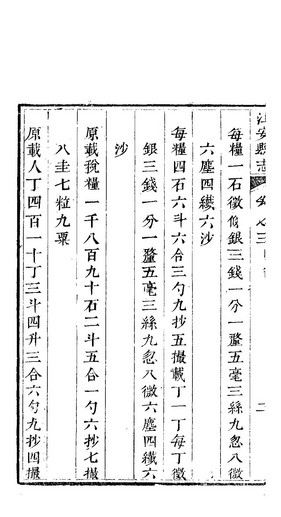 江安縣志
卷之三
二
每糧一石徵條銀三錢一分一釐五毫三絲九忽八微
六塵四纖六沙
每糧四石六斗六合三勺九抄五撮載丁一丁每丁徵
銀三錢一分一釐五毫三絲九忽八微六塵四纖六
沙
原載稅糧一千八百九十石二斗五合一勺六抄七撮
八圭七粒九粟
原載人丁四百一十丁三斗四升三合六勺九抄四撮